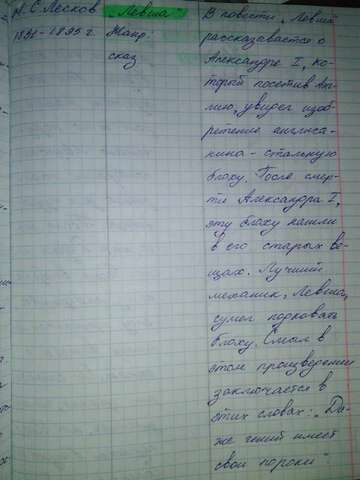 Н. С. Лесков
1831-1895 г.
„Левша“
Жанр:
сказ
В повести „Левша
рассказавается о
Александре I, ко-
торый посетив Ан-
лию, увидел изоб-
ретение англича-
нина - стальную
блоху. После смер-
ти Александра I,
эту блоху нашли
в его старых ве-
щах. Лучший
механик, Левша,
сумел подковать
блоху. Смысл в
этом произведении
заключается в
этих словах: „Да-
же гений имеет
свои пороки“.